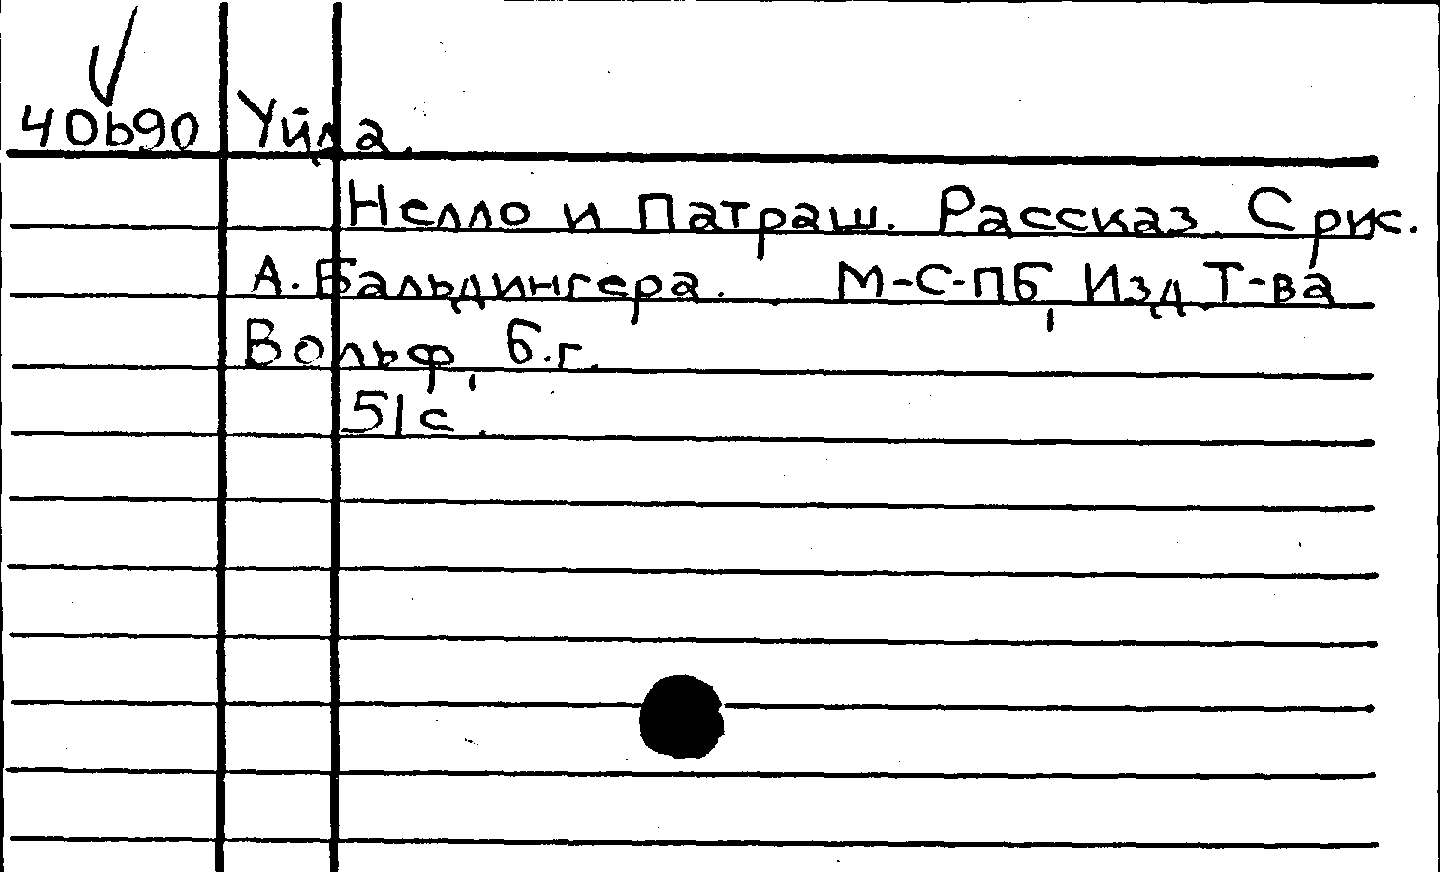 40b90 Уйда.
Нелло и Патраш. Рассказ. С рис.
А. Бальдингера. М-С-ПБ, Изд. Т-ва
Вольф, б.г.
51 с.